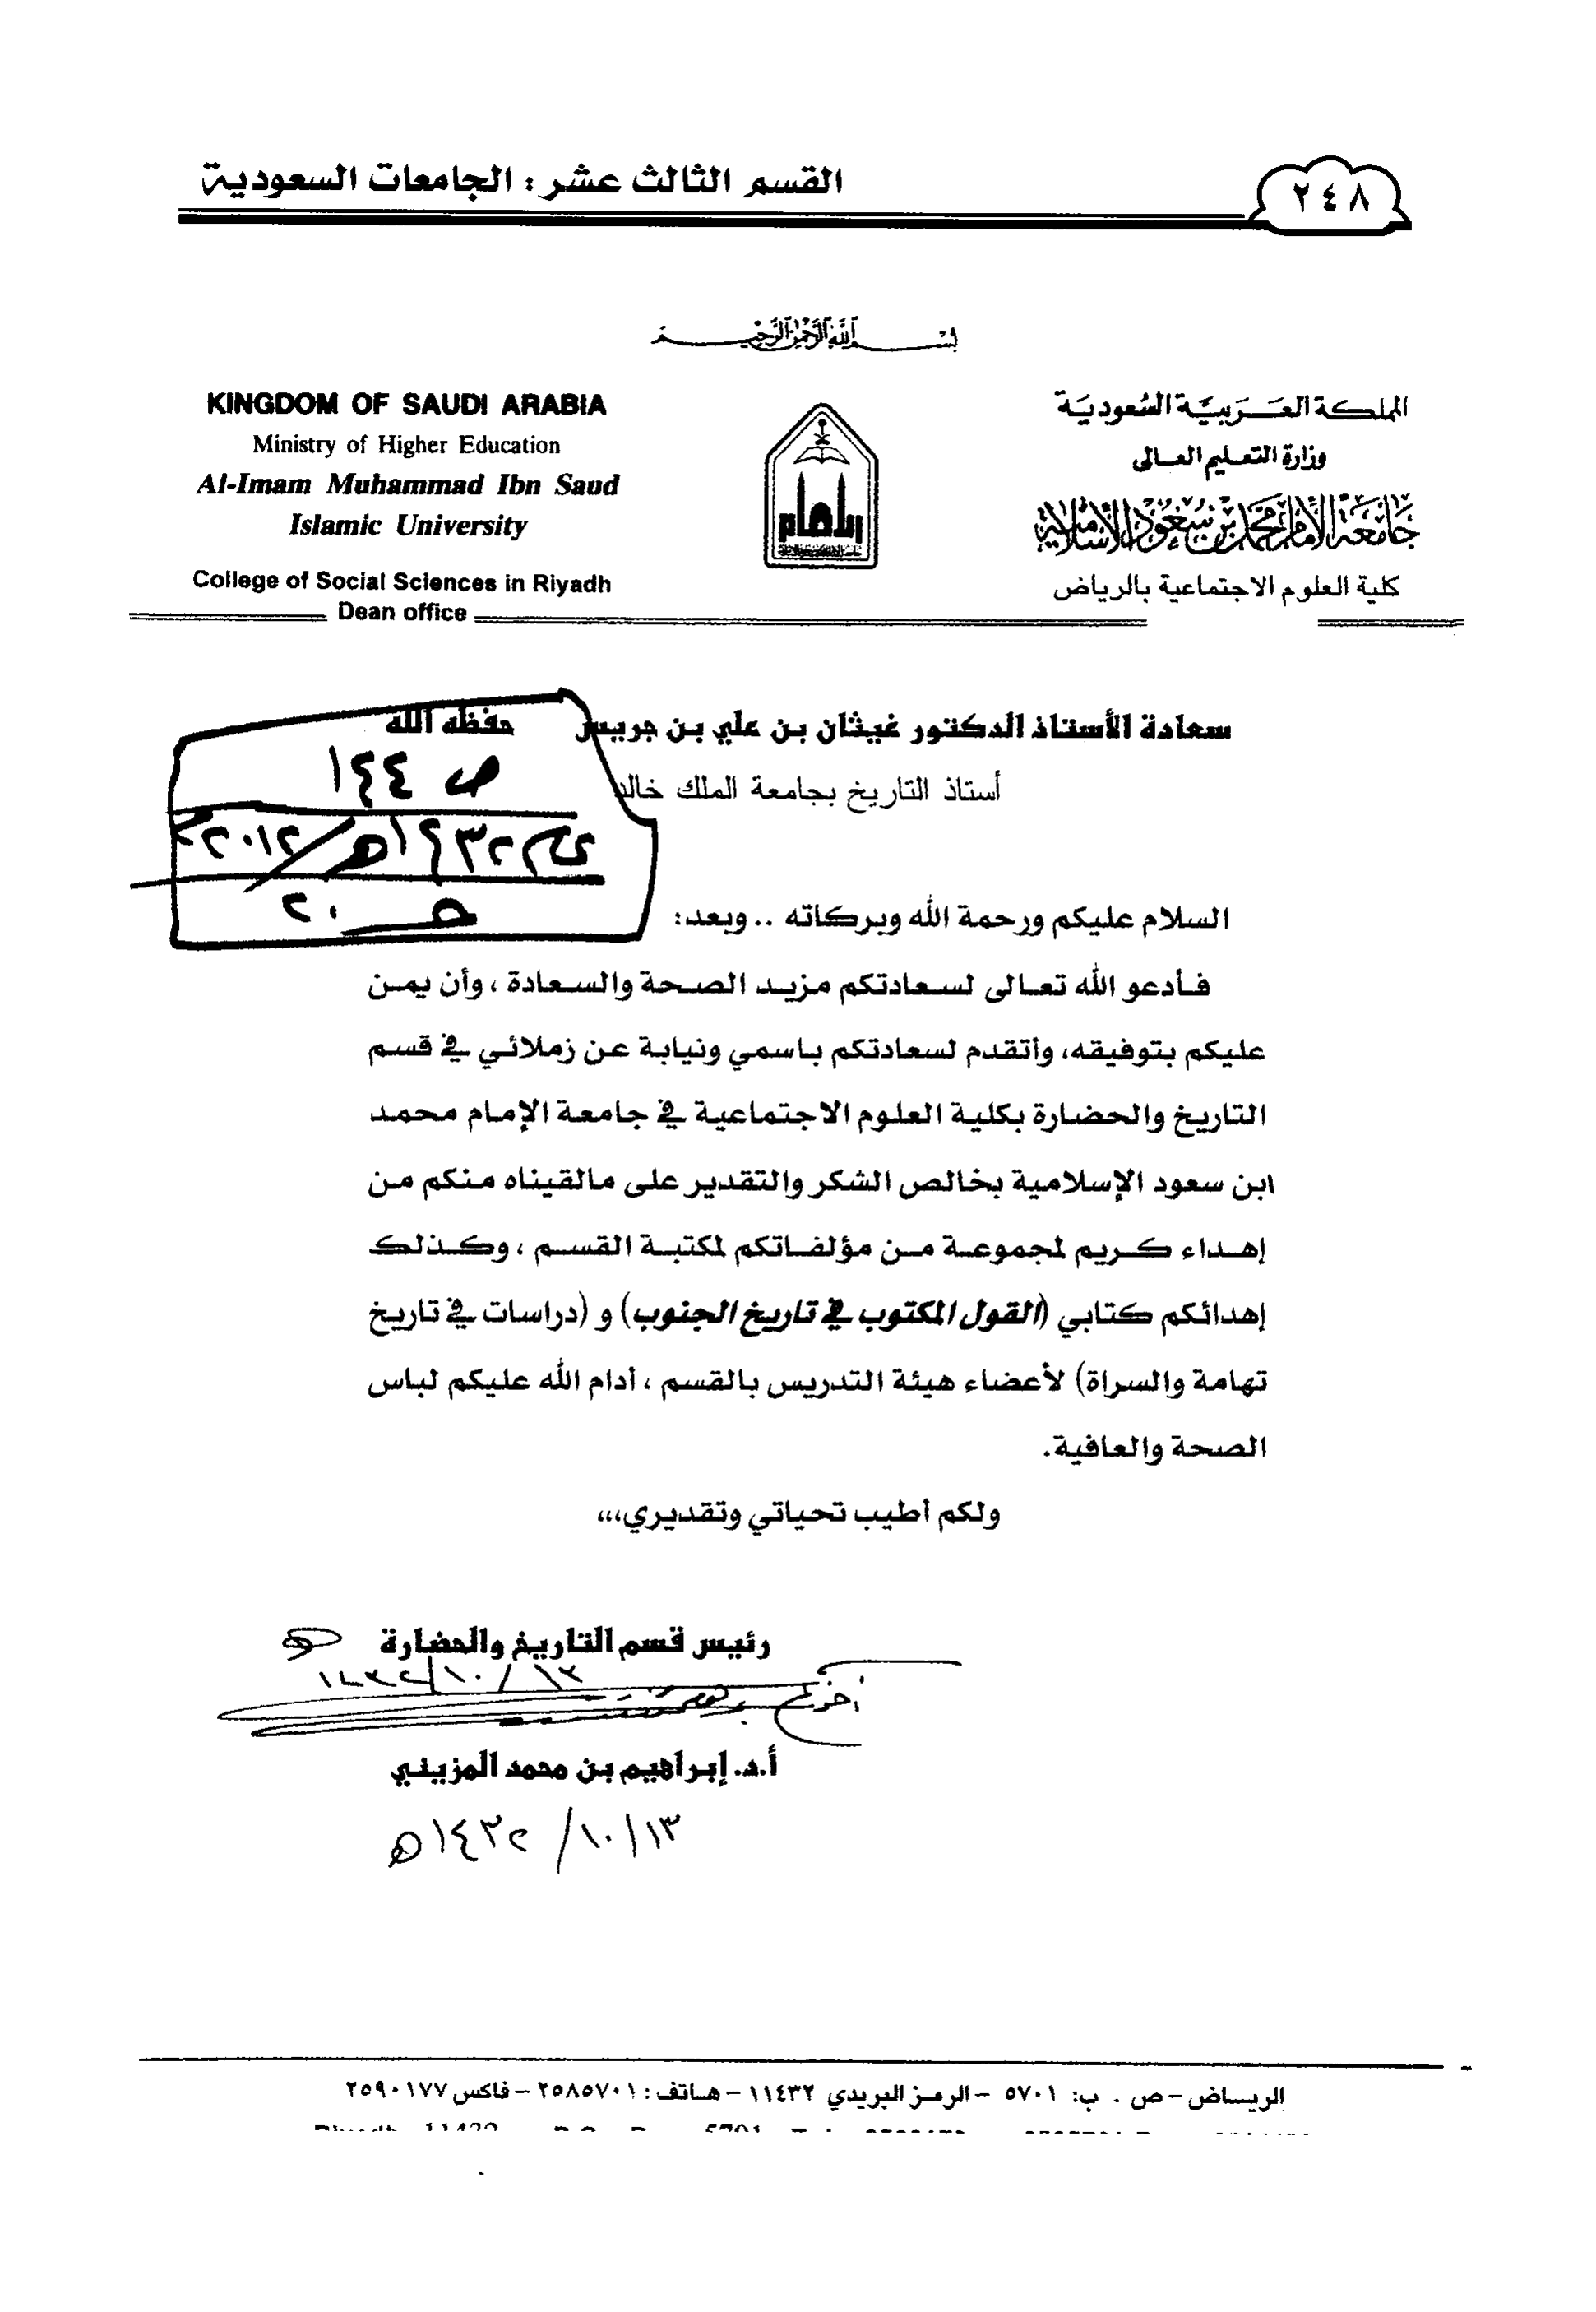 القسم الثالث عشر : الجامعات السعودية
٢٤٨
بسم الله الرحمن الرحيم
KINGDOM OF SAUDI ARABIA
Ministry of Higher Education
Al-Imam Muhammad Ibn Saud
Islamic University
College of Social Sciences in Riyadh
Dean office
المملكة العربية السعودية
وزارة التعليم العالى
جامعة الإمام محمد بن سعود الإسلامية
كلية العلوم الاجتماعية بالرياض
سعادة الأستاذ الدكتور غيثان بن علي بن جريس حفظه الله
أستاذ التاريخ بجامعة الملك خالد
ص ١٤٤
١٤٣٢هـ/٢٠١٢م
السلام عليكم ورحمة الله وبركاته .. وبعد:
فأدعو الله تعالى لسعادتكم مزيد الصحة والسعادة ، وأن يمن
عليكم بتوفيقه، وأتقدم لسعادتكم باسمي ونيابة عن زملائي في قسم
التاريخ والحضارة بكلية العلوم الاجتماعية في جامعة الإمام محمد
ابن سعود الإسلامية بخالص الشكر والتقدير على مالقيناه منكم من
إهداء كريم لمجموعة من مؤلفاتكم لمكتبة القسم ، وكذلك
إهدائكم كتابي (القول المكتوب في تاريخ الجنوب) و (دراسات في تاريخ
تهامة والسراة) لأعضاء هيئة التدريس بالقسم ، أدام الله عليكم لباس
الصحة والعافية.
ولكم أطيب تحياتي وتقديري،،،
رئيس قسم التاريخ والحضارة
أ.د. إبراهيم بن محمد المزيني
١٣/١٠/١٤٣٢هـ
الرياض – ص . ب: ٥٧٠١ – الرمز البريدي ١١٤٣٢ – هاتف : ٢٥٨٥٧٠١ – فاكس ٢٥٩٠١٧٧